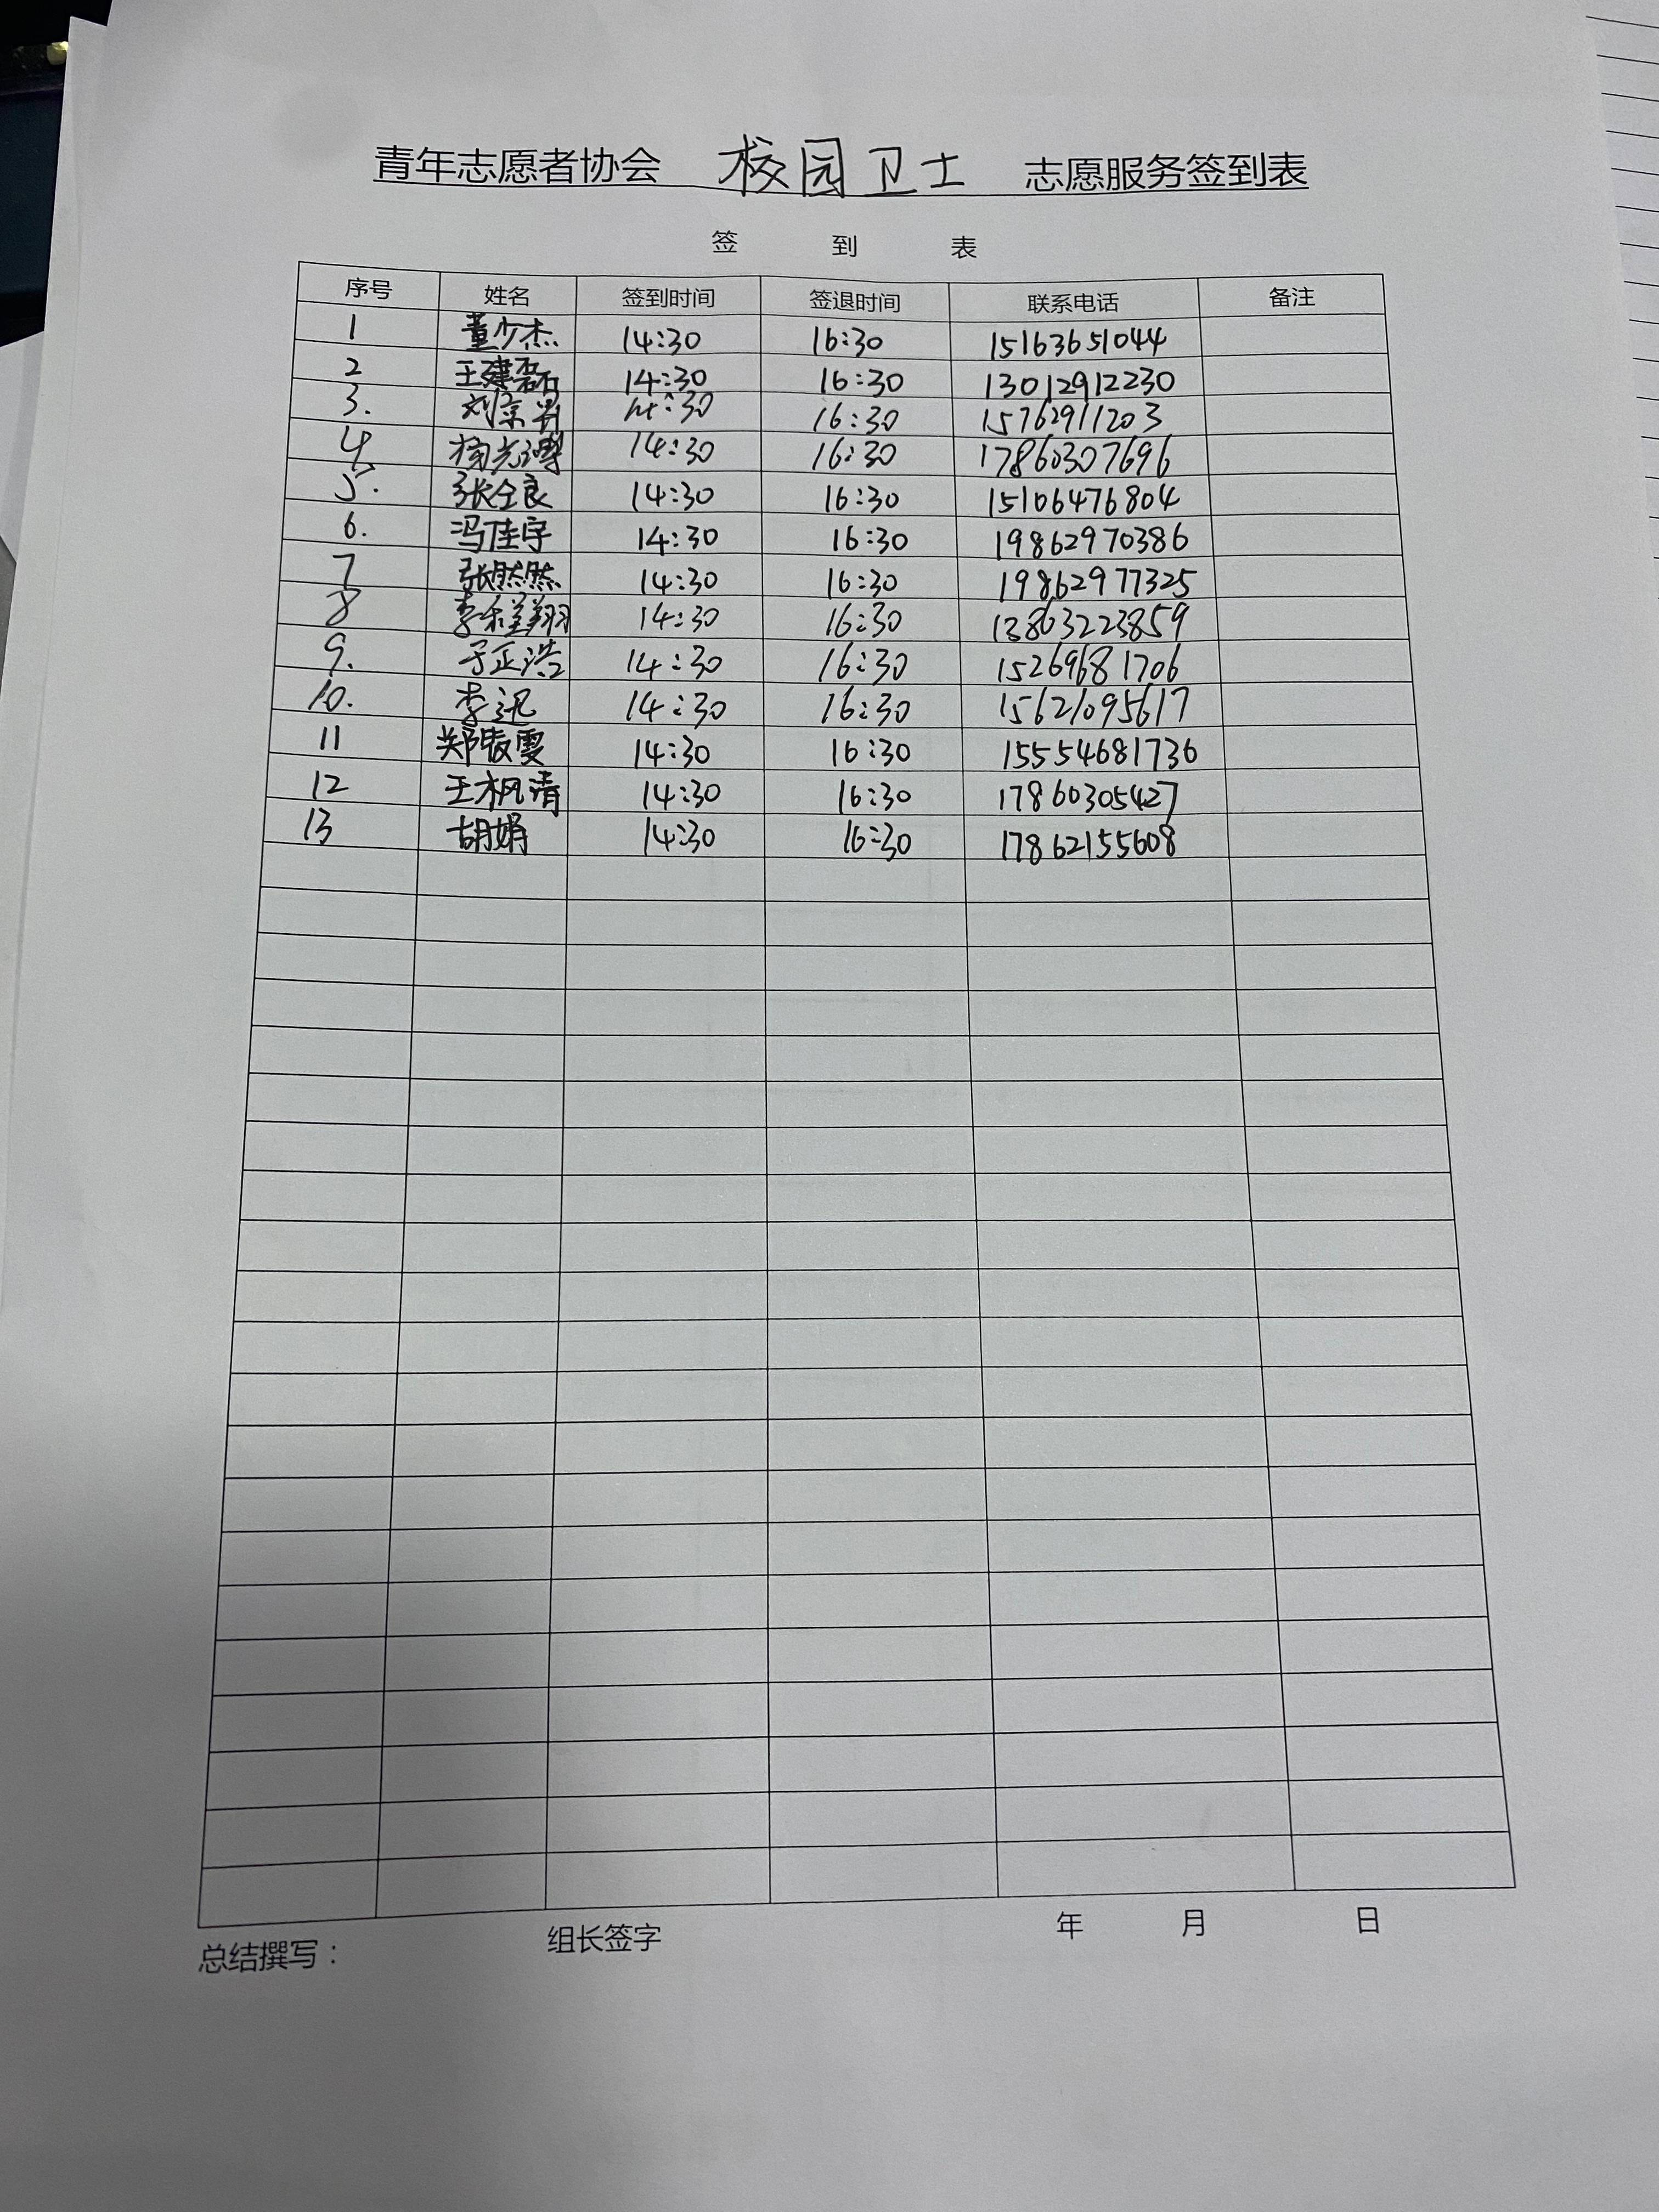 青年志愿者协会 校园卫士 志愿服务签到表
签 到 表
序号 姓名 签到时间 签退时间 联系电话 备注
1 董少杰 14:30 16:30 15163651044
2 王建磊 14:30 16:30 13012912230
3. 刘宗男 14:30 16:30 15762911203
4 杨光 14:30 16:30 17860307696
5. 张全良 14:30 16:30 15106476804
6. 冯佳宇 14:30 16:30 19862970386
7 张然然 14:30 16:30 19862977325
8 李 翔 14:30 16:30 13863223859
9. 于正浩 14:30 16:30 15269681706
10. 李迅 14:30 16:30 15621095617
11 郑 雯 14:30 16:30 15554681736
12 王枫清 14:30 16:30 17860305427
13 胡娟 14:30 16:30 17862155608
总结撰写： 组长签字 年 月 日